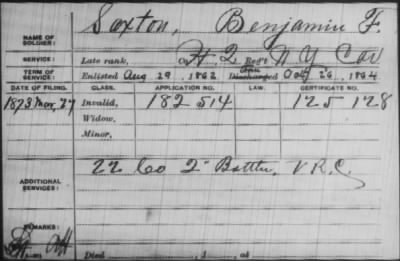 Saxton, Benjamin F.
NAME OF SOLDIER:
SERVICE: Late rank, Co H. 2 Reg't N Y Cav
TERM OF SERVICE: Enlisted Aug 29, 1862 Discharged Oct 26, 1864
DATE OF FILING. CLASS. APPLICATION NO. LAW. CERTIFICATE NO.
1873 Mar, 27 Invalid, 182514 125128
Widow,
Minor,
ADDITIONAL SERVICES: 22 Co 2" Battn, V R C.
REMARKS:
Died , 1 , at